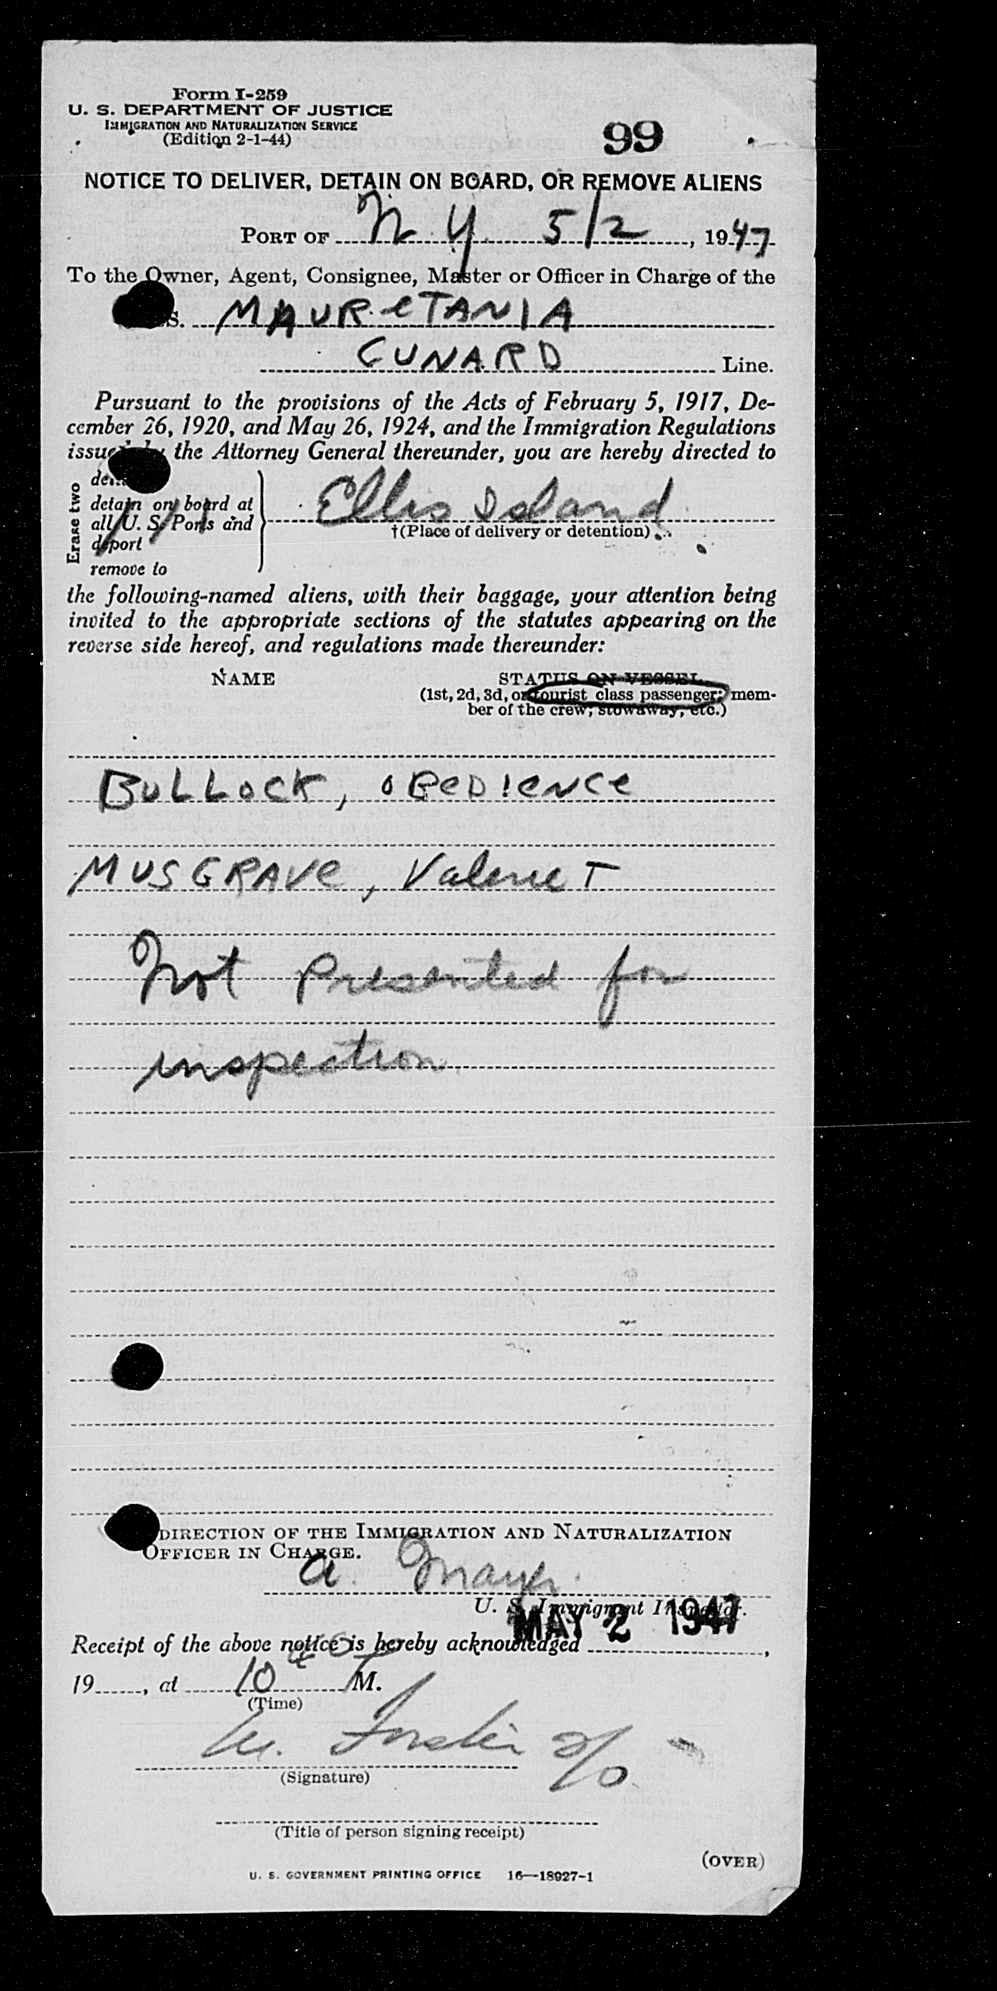 Form I-259
U. S. DEPARTMENT OF JUSTICE
IMMIGRATION AND NATURALIZATION SERVICE
(Edition 2-1-44)
99
NOTICE TO DELIVER, DETAIN ON BOARD, OR REMOVE ALIENS
PORT OF N. Y. 5/2, 1947
To the Owner, Agent, Consignee, Master or Officer in Charge of the
S. MAURETANIA
CUNARD Line.
Pursuant to the provisions of the Acts of February 5, 1917, De-
cember 26, 1920, and May 26, 1924, and the Immigration Regulations
issued by the Attorney General thereunder, you are hereby directed to
Erase two
detain on board at
all U. S. Ports and
deport
remove to
Ellis Island
†(Place of delivery or detention)
the following-named aliens, with their baggage, your attention being
invited to the appropriate sections of the statutes appearing on the
reverse side hereof, and regulations made thereunder:
NAME STATUS ON VESSEL
(1st, 2d, 3d, or tourist class passenger; mem-
ber of the crew; stowaway, etc.)
BULLOCK, OBEDIENCE
MUSGRAVE, Valerie T
Not Presented for
inspection.
DIRECTION OF THE IMMIGRATION AND NATURALIZATION
OFFICER IN CHARGE.
A. Mayer
U. S. Immigrant Inspector.
MAY 2 1947
Receipt of the above notice is hereby acknowledged
19, at 10 M.
(Time)
(Signature)
(Title of person signing receipt)
(OVER)
U. S. GOVERNMENT PRINTING OFFICE 16—18927-1